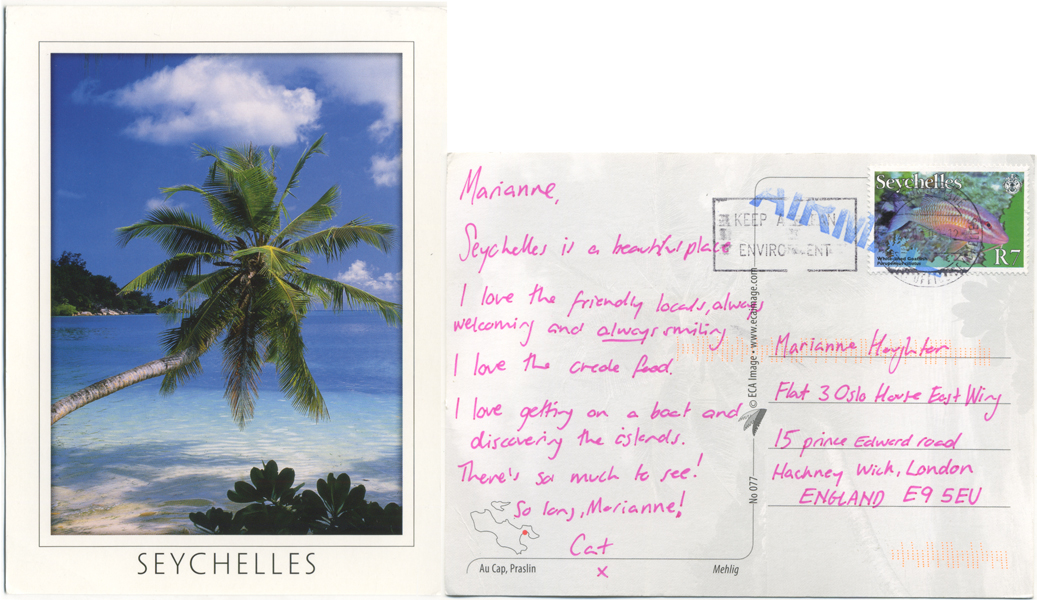 SEYCHELLES
Marianne,
Seychelles is a beautiful place
I love the friendly locals, always
welcoming and always smiling
I love the creole food.
I love getting on a boat and
discovering the islands.
There's so much to see!
So long, Marianne!
Cat
x
Au Cap, Praslin
Mehlig
No 077
© ECA Image • www.ecaimage.com
KEEP
ENVIRONMENT
AIRMA
Seychelles
R7
Marianne
Flat 3 Oslo House East Wing
15 prince Edward road
Hackney Wick, London
ENGLAND E9 5EU